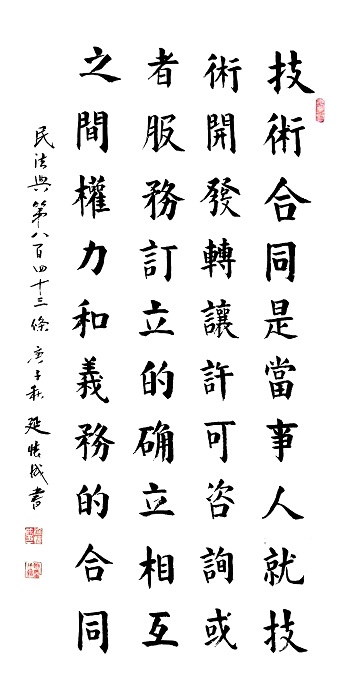 技術合同是當事人就技
術開發轉讓許可咨詢或
者服務訂立的确立相互
之間權力和義務的合同
民法典第八百四十三條 庚子秋 延 成書